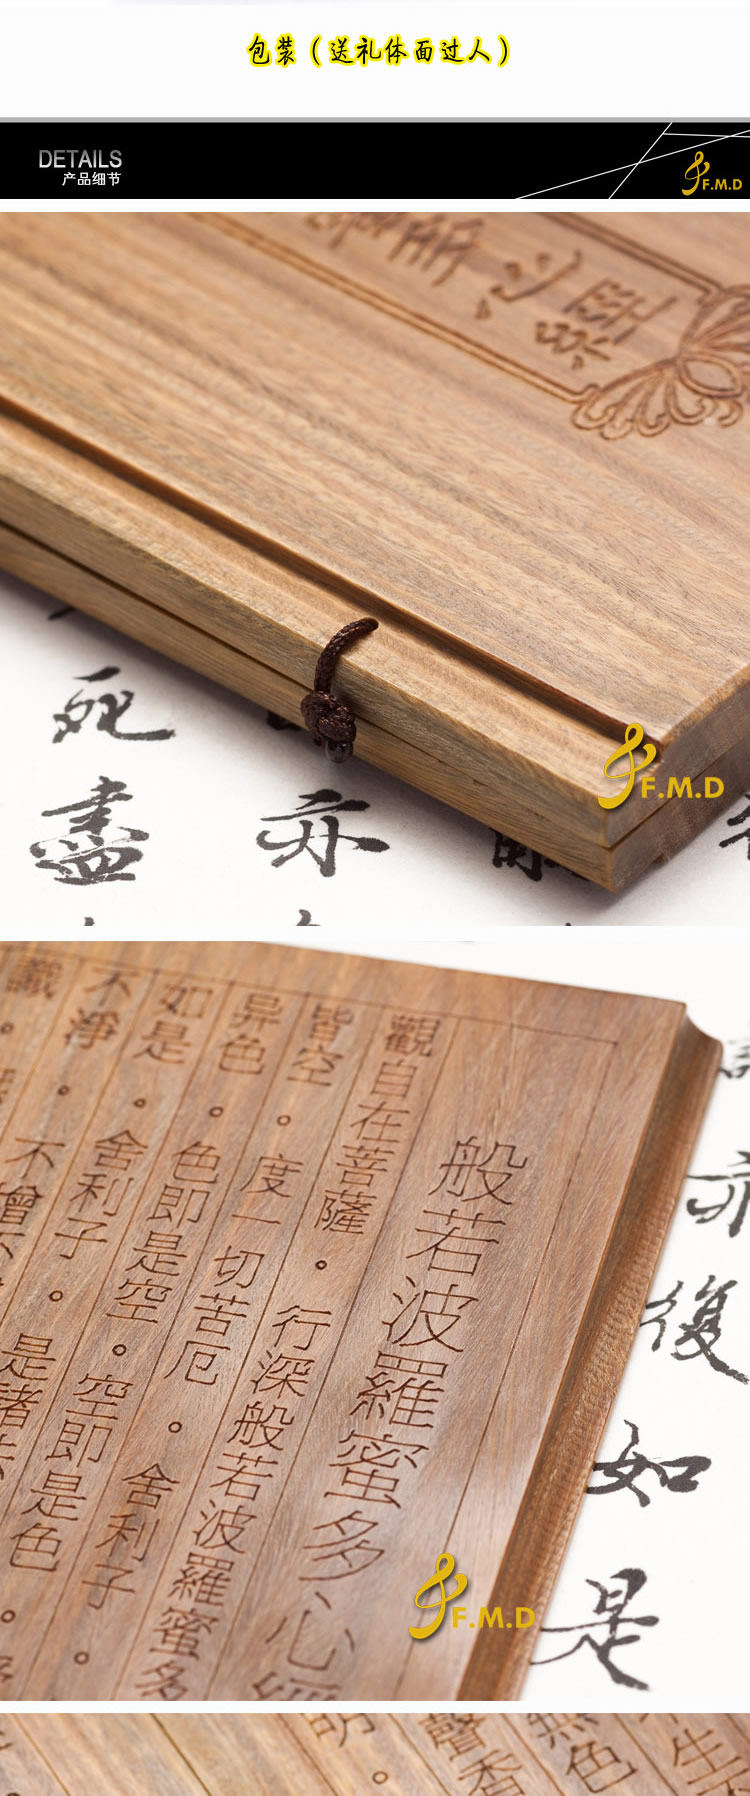 包装（送礼体面过人）
DETAILS
产品细节
F.M.D
心經
死
盡
亦
F.M.D
般若波羅蜜多心經
觀自在菩薩。行深般若波羅蜜多
皆空。度一切苦厄。舍利子
异色。色即是空。空即是色
如是。舍利子。是諸
不淨。不增不
識。
亦
復
如
是
F.M.D
生
無色